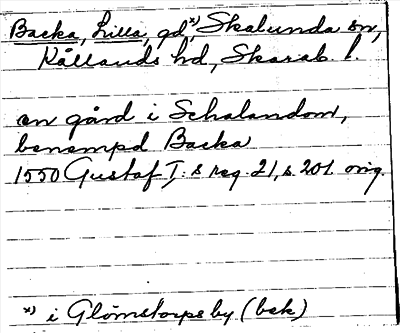 Backa, Lilla, gd*), Skalunda sn,
Kållands hd, Skarab. l.
en gård i Schalandom,
benempd Backa
1550 Gustaf I:s reg. 21, s. 201. orig.
*) i Glömstorps by (bek)